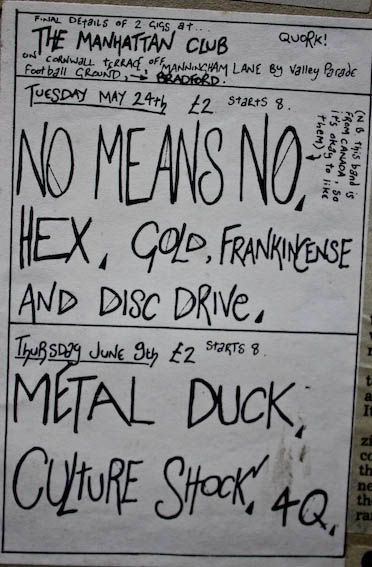 FINAL DETAILS OF 2 GIGS at...
THE MANHATTAN CLUB
QUORK!
ON CORNWALL TERRACE OFF MANNINGHAM LANE By Valley Parade
Football GROUND, → BRADFORD.
TUESDAY MAY 24th £2 StARTS 8.
NO MEANS NO,
(N.B this band is
FROM CANADA, so
it's okay to like
them)
HEX, GOLD, FRANKINCENSE
AND DISC DRIVE.
THURSDAY JUNE 9th £2 StARTS 8.
METAL DUCK,
CULtURE SHOCK, 4Q.